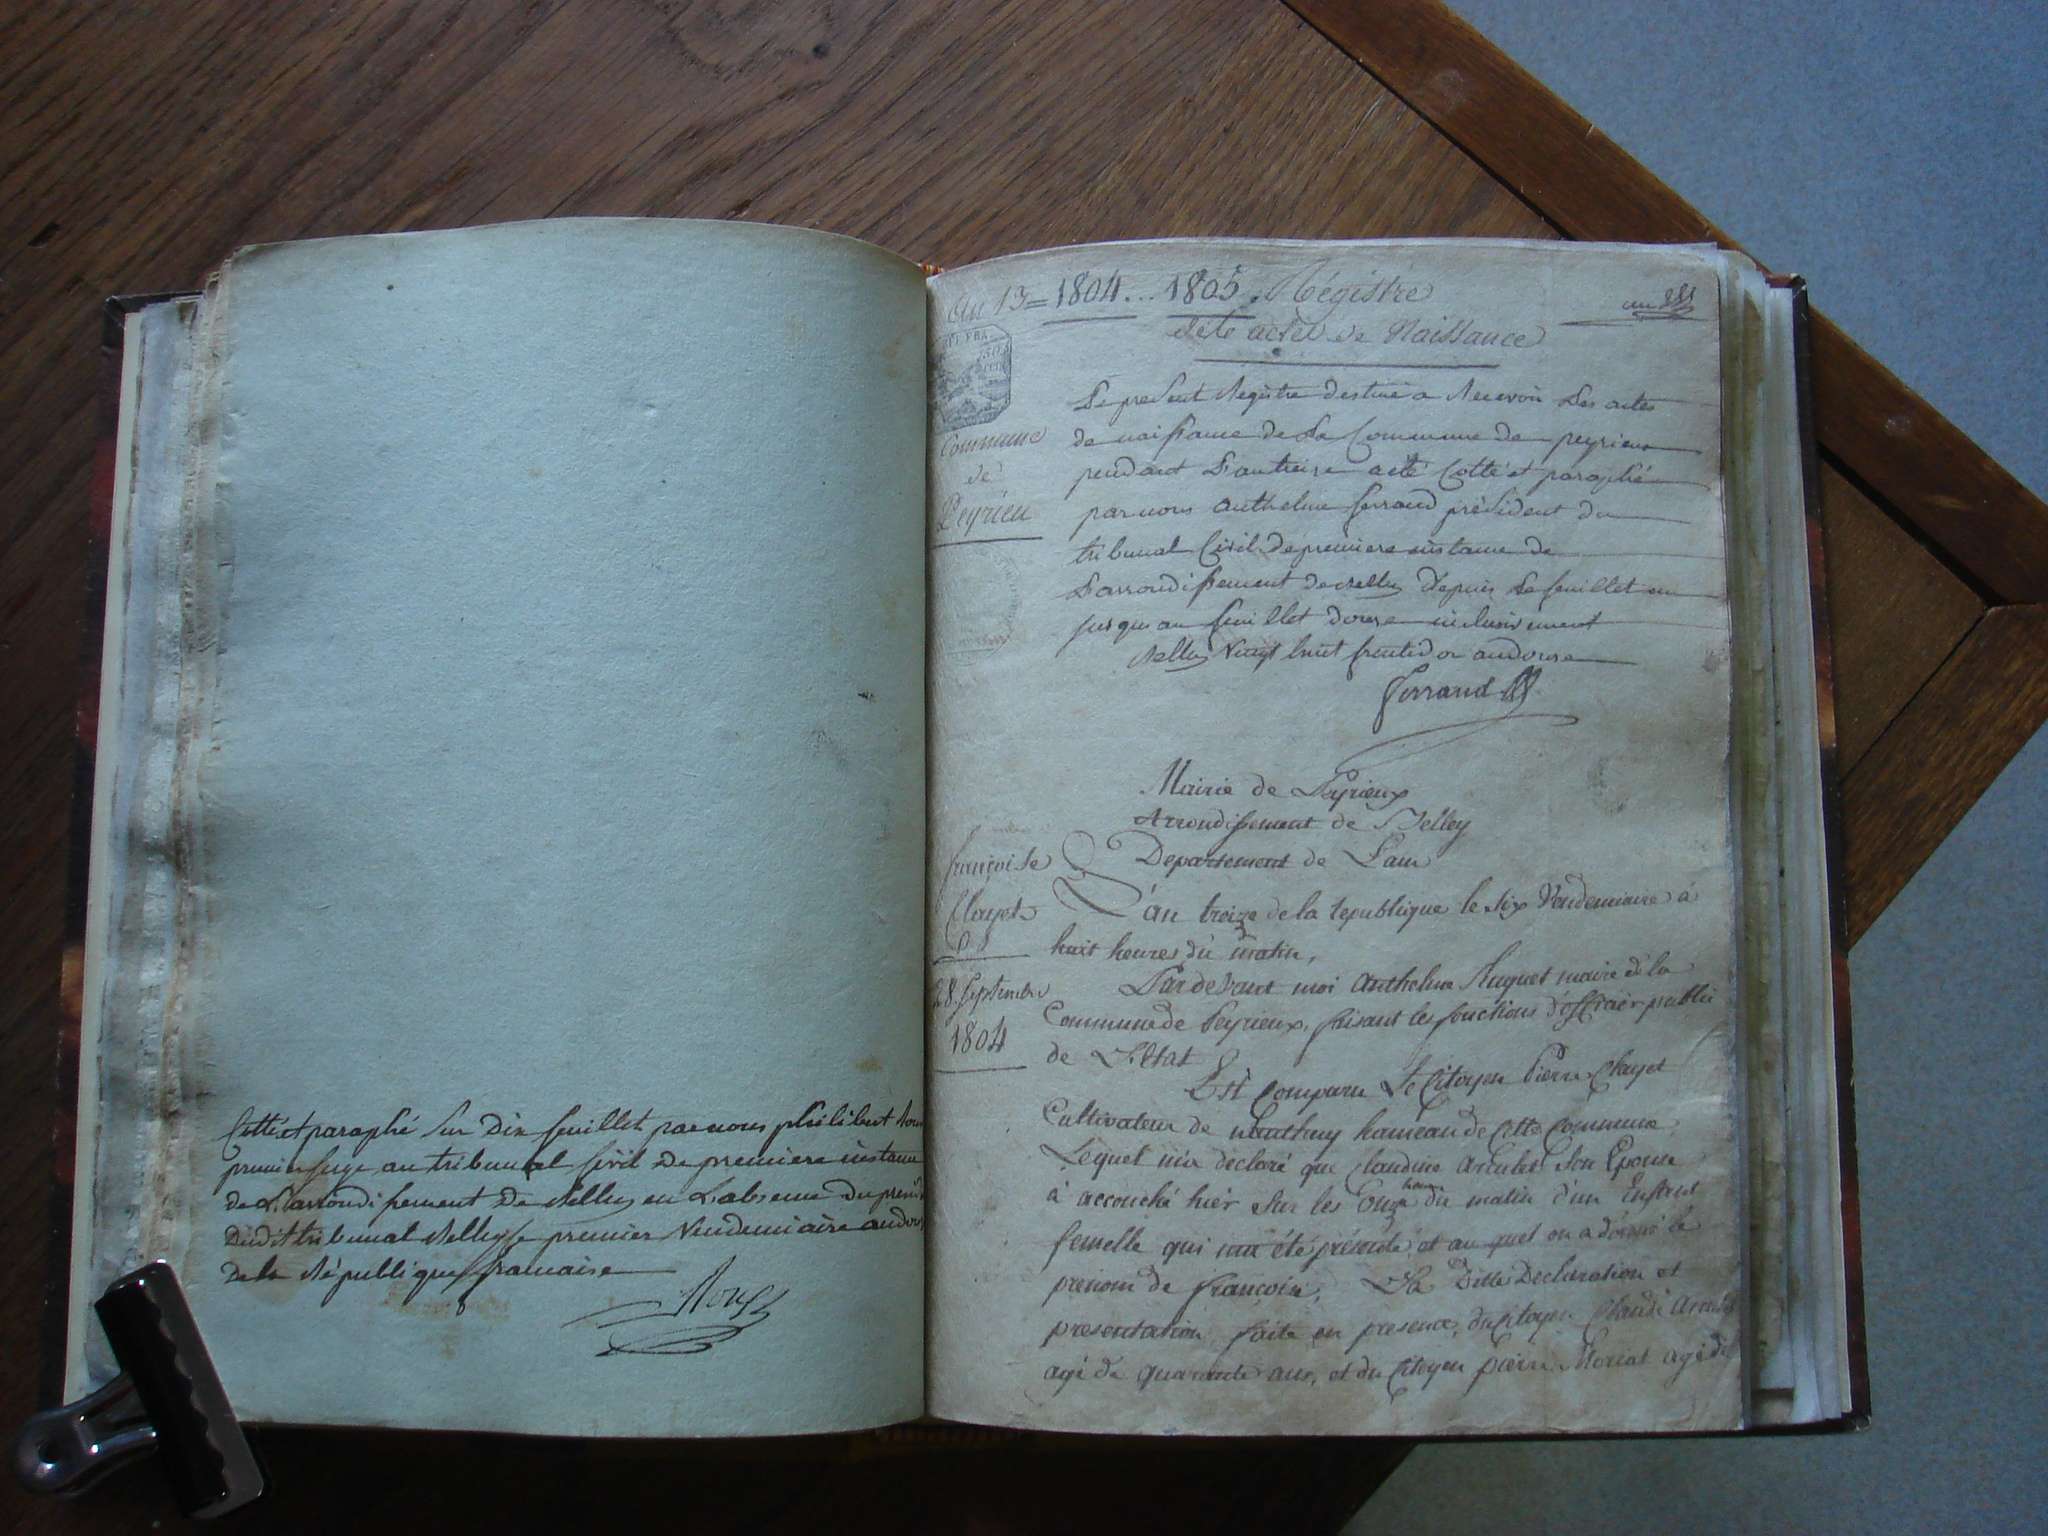 Cotté et paraphé sur dix feuillet par nous philibert
premier juge au tribunal Civil de premiere instance
de L'arrondissement de Belley en L'absence du presid
dudit tribunal Belley le premier Vendemiaire an douz
de la République francaise
An 13 = 1804... 1805. Régistre
des actes de Naissance
un
Commune
de
Peyrieu
Le present Registre destiné a Recevoir Les actes
de naissance de La Commune de peyrieu
pendant L'an treize a été Cotté et paraphé
par nous anthelme ferrand président du
tribunal Civil de premiere instance de
L'arrondissement de Belley depuis Le feuillet un
jusqu'au feuillet douze inclusivement
Belley Vingt huit fructidor an douze
ferrand
Mairie de Peyrieux
Arrondissement de Belley
Departement de L'ain
françoise
Clayet
28. Septembre
1804
L'an treize de la republique le six Vendemiaire à
huit heures du matin,
Pardevant moi Anthelme Huguet maire de la
Commune de Peyrieux, faisant les fonctions d'officier public
de L'état
Est Comparu Le Citoyen Pierre Clayet
Cultivateur de hameau de Cette Commune
Lequel m'a declaré que Claudine Son Epouse
à accouché hier sur les Onze heures du matin d'un Enfant
femelle qui m'a été présenté, et au quel on a donné le
prenom de francoise, La Ditte Declaration et
presentation faite en presence, du Citoyen Claude
agé de quarante ans, et du Citoyen pierre Moriat agé de